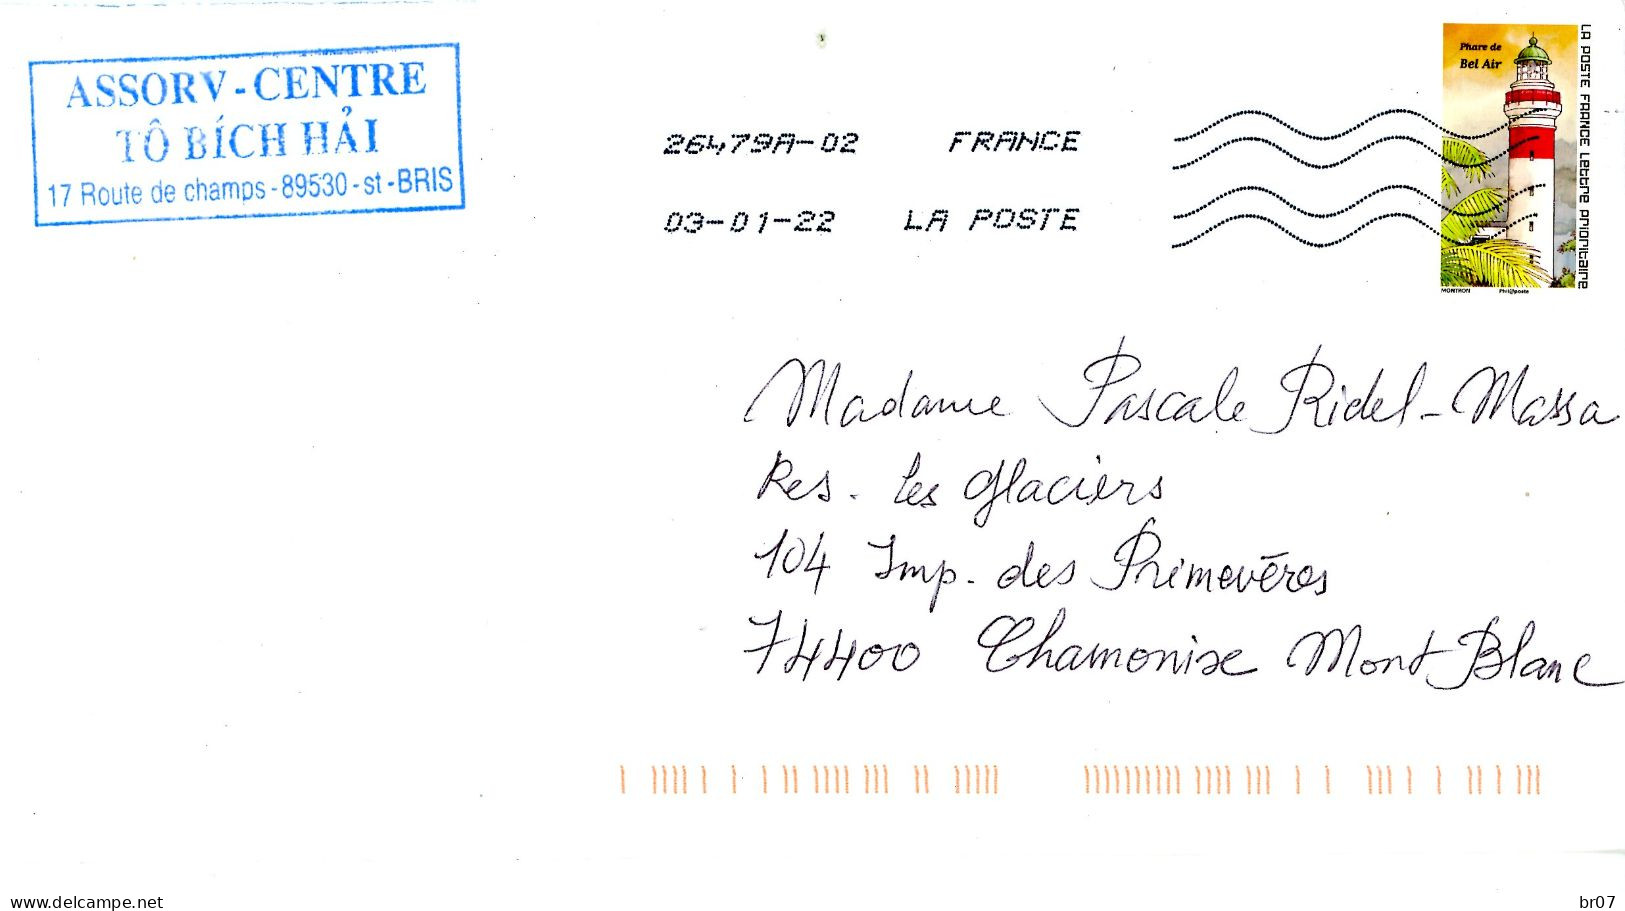 ASSORV-CENTRE
TÔ BÍCH HẢI
17 Route de champs-89530-st-BRIS
26479A-02 FRANCE
03-01-22 LA POSTE
Phare de
Bel Air
LA POSTE FRANCE Lettre Prioritaire
MONTRON Phil@poste
Madame Pascale Ridel-Massa
Res. Les Glaciers
104 Imp. des Primevēres
74400 Chamonixe Mont Blanc
www.delcampe.net
br07